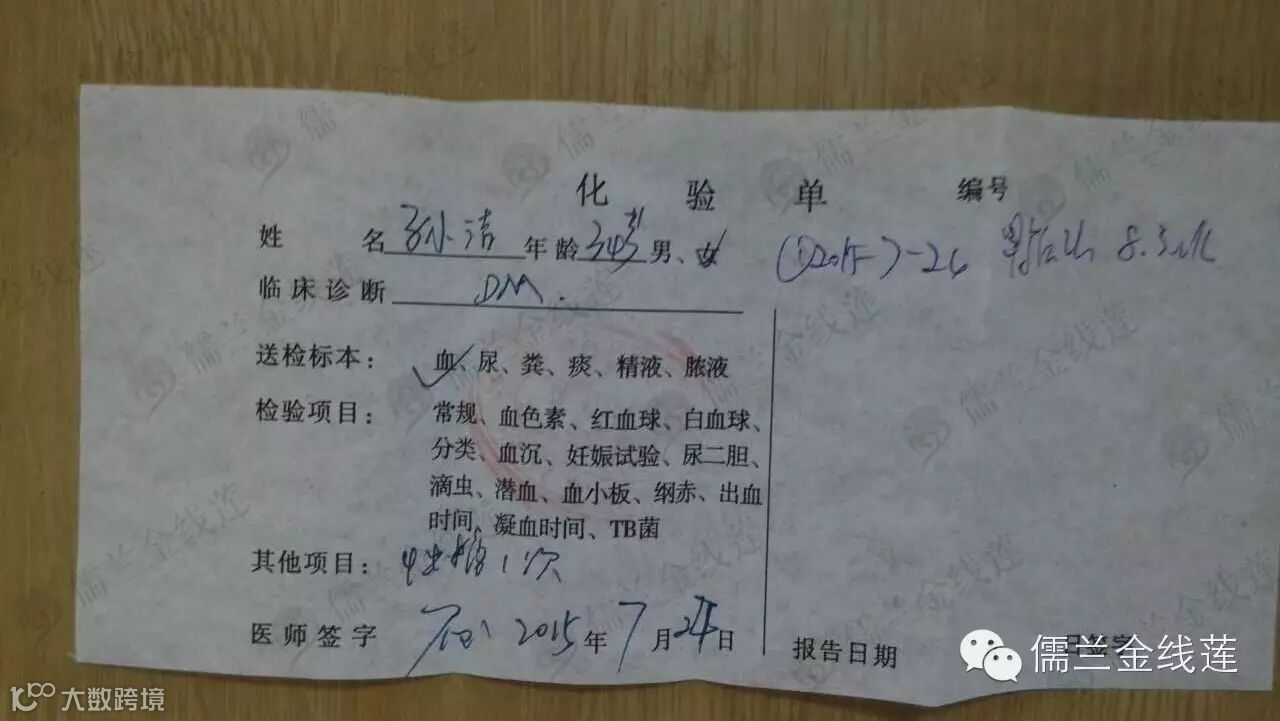 化 验 单 编号
姓 名 孙洁 年龄 34岁 男、女
①2015-7-26 早餐后2h 8.3
临床诊断 DM.
送检标本: 血、尿、粪、痰、精液、脓液
检验项目: 常规、血色素、红血球、白血球、
分类、血沉、妊娠试验、尿二胆、
滴虫、潜血、血小板、纲赤、出血
时间、凝血时间、TB菌
其他项目: 血糖1次
医师签字 2015年7月24日
报告日期 签字
儒兰金线莲
大数跨境